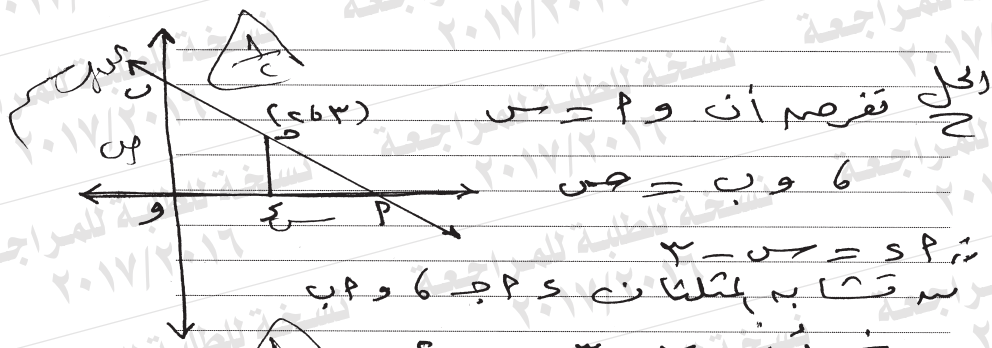 الحل نفرض أن و م = س
، و ب = ص
∵ م د = س - ٣
∴ تشابه المثلثان د م جـ ، و م ب
(٣ ، ٢)
جـ
ب
ص
و
د
س
م
نسخة للطلبة للمراجعة
٢٠١٧/٢٠١٦